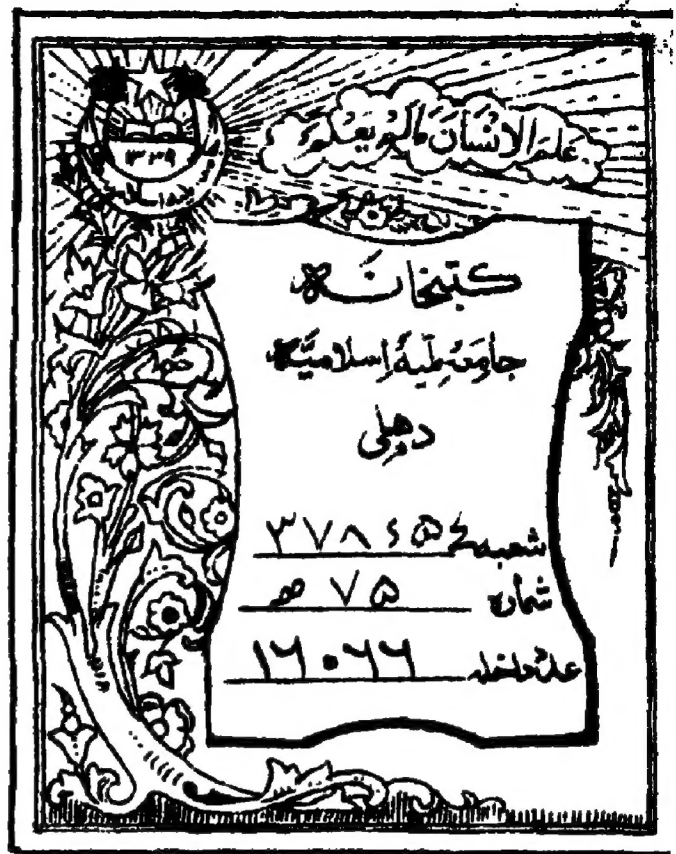 علم الانسان مالم يعلم
۱۳۳۹
كتبخانه
جامعہ ملیہ اسلامیہ
دہلی
شعبہ ۳۷۸۶۵
شمارہ ۷۵
داخلہ ۱۶۰۶۶